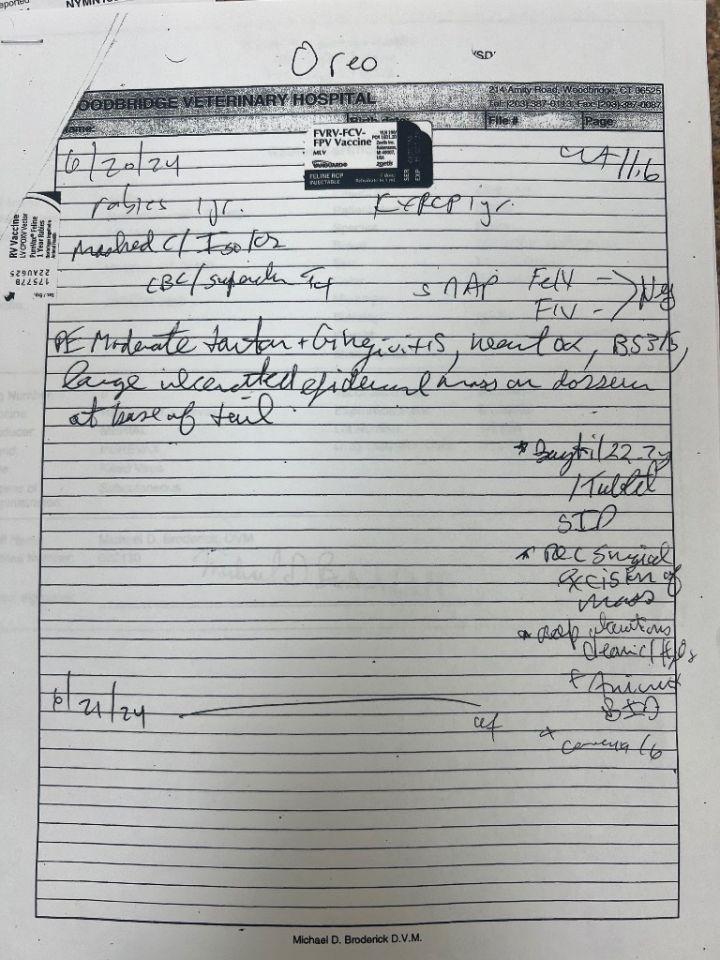 NYMN
Oreo
'SD'
OODBRIDGE VETERINARY HOSPITAL
214 Amity Road, Woodbridge, CT 06525
Tel: (203) 387-0113 Fax: (203) 387-0087
File #
Page
FVRV-FCV-
FPV Vaccine
MLV
zoetis
FELINE RCP
INJECTABLE
SER
EXP
6/20/24
11.6
rabies 1yr.
1yr.
RV Vaccine
1 Year Rabies
22AUG25
17577B
Masked c/ Iso/O2
CBC/superchem T4
SNAP FeLV - Neg
FIV -
PE Moderate tartar + Gingivitis, heart ok, BS 3/5,
large ulcerated epidermal mass on dorsum
at base of tail
* Baytril 22.7
1 Tablet
SID
* Rec Surgical
excision of
mass
clean c/ H2O2
BID
6/21/24
Michael D. Broderick, DVM
Michael D. Broderick D.V.M.